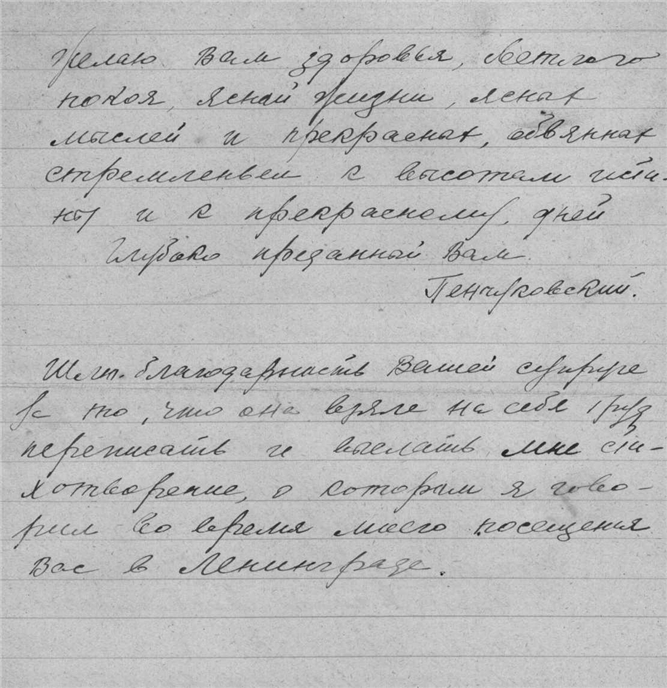 Желаю Вам здоровья, светлого
покоя, ясной жизни, ясных
мыслей и прекрасных, обвянных
стремленьем к высотам исти-
ны и к прекрасному, дней
Глубоко преданный Вам
Пенчуковский.
Шлю благодарность Вашей супруге
за то, что она взяла на себя труд
переписать и выслать мне сти-
хотворение, о котором я гово-
рил во время моего посещения
Вас в Ленинграде.